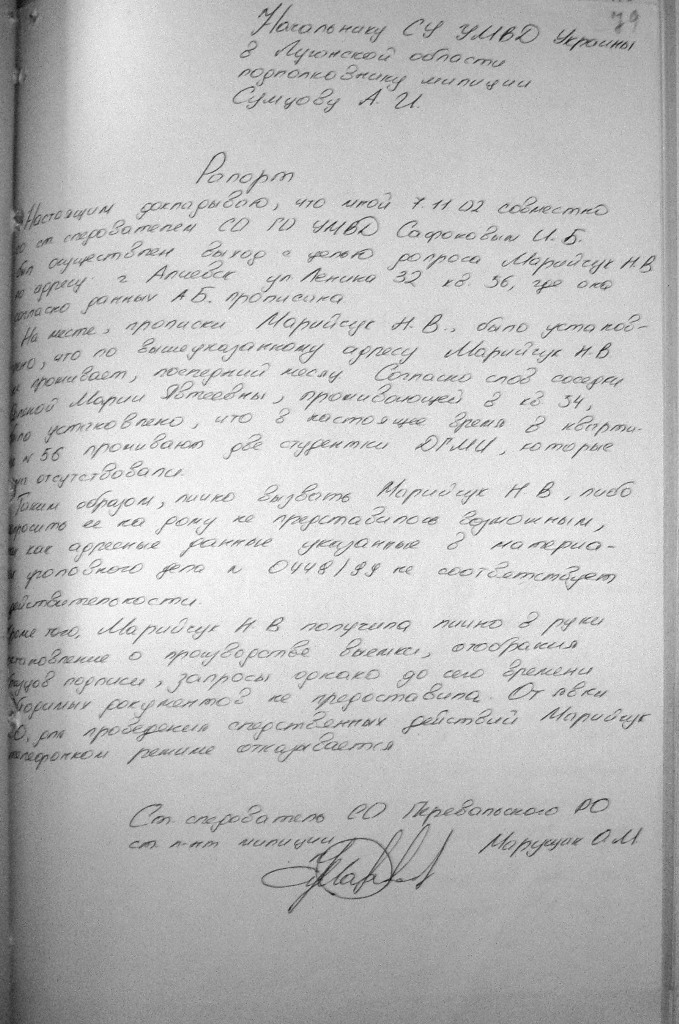 79
Начальнику СУ УМВД Украины
в Луганской области
подполковнику милиции
Сумцову А. И.
Рапорт
Настоящим докладываю, что мной 7.11 02 совместно
со ст. следователем СО ГО УМВД Сафоновым И. Б.
был осуществлен выход с целью допроса Марийчук Н.В
по адресу: г Алчевск ул Ленина 32 кв. 56, где она
согласно данных А.Б. прописана
На месте, прописки Марийчук Н. В., было установ-
но, что по вышеуказанному адресу Марийчук Н.В.
проживает, последний месяц Согласно слов соседки
Марии Явтеевны, проживающей в кв 54,
установлено, что в настоящее время в кварти-
№ 56 проживают две студентки ДГМИ, которые
отсутствовали.
Таким образом, лично вызвать Марийчук Н В, либо
просить ее на дому не представилось возможным,
как адресные данные указанные в материа-
уголовного дела № 0448/99 не соответствует
действительности.
роме того, Марийчук Н В получила лично в руки
тановление о производстве выемки, отобрания
зцов подписи, запросы однако до сего времени
бходимых документов не предоставила. От явки
О, для проведения следственных действий Марийчук
телефонном режиме отказывается
Ст. следователь СО Перевальского РО
ст. л-нт милиции Марущак О М